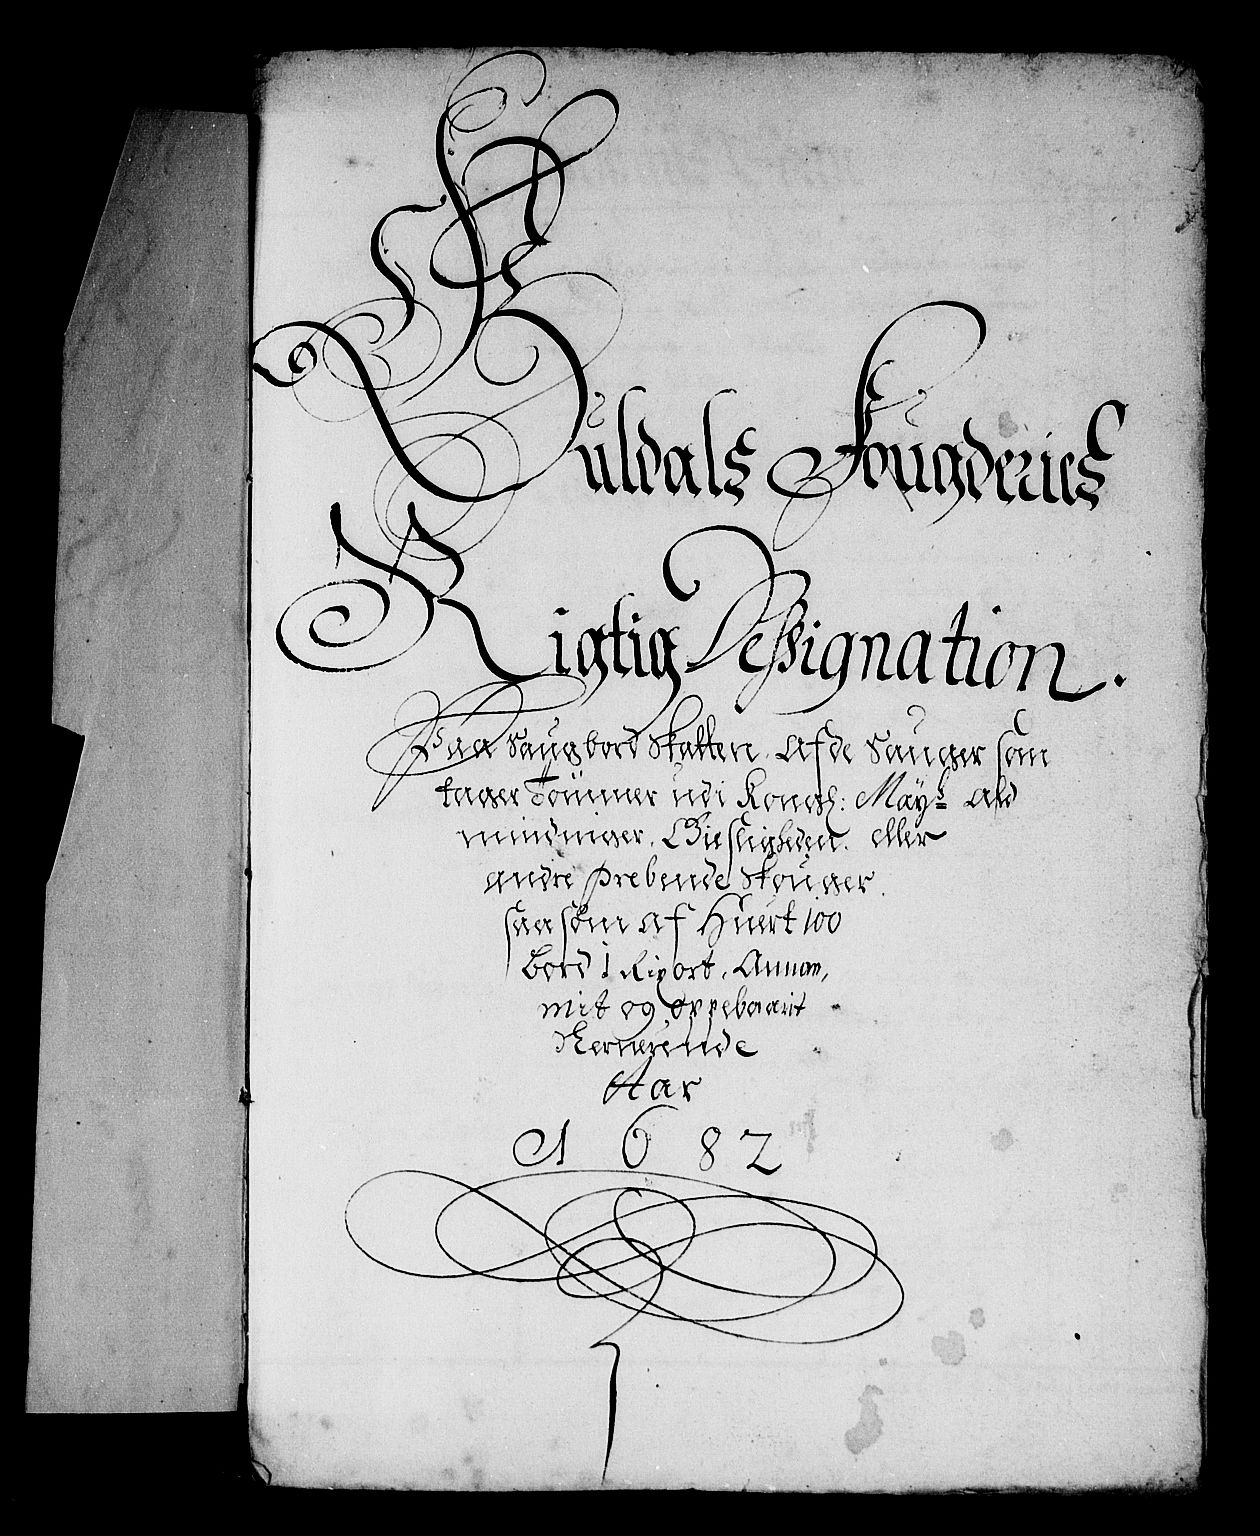 Guldals Fougderies
Rigtig Dessignation.
Paa Saugbord Skatten. Af de Sauger som
tager Tömmer udi Kongl: Mayts Ald
mindninger. Giestligheden. eller
andre prebende Skouger.
saasom af Huert 100
Bord 1 Rixort. Annam,
mit og oppebaarit
Nerverende
Aar
1682